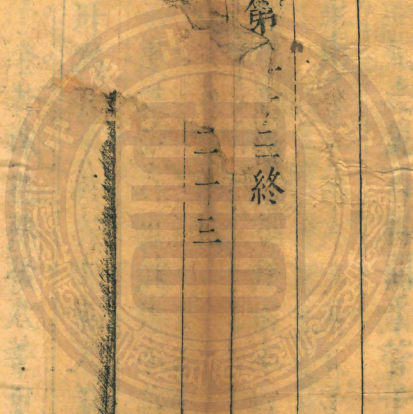 第十三終
二十三